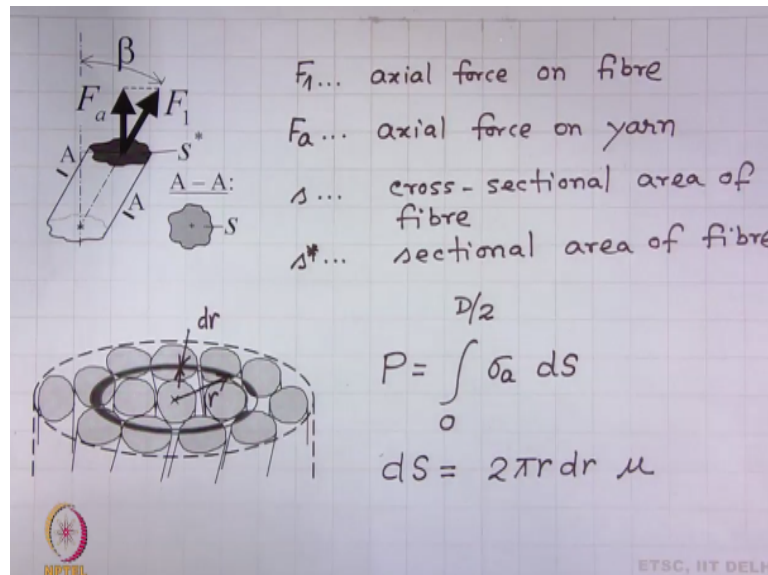 β
Fa
F1
A
S*
A – A:
A
S
F1... axial force on fibre
Fa... axial force on yarn
s... cross-sectional area of
fibre
s*... sectional area of fibre
dr
r
D/2
P = ∫ σa dS
0
dS = 2πr dr μ
NPTEL
ETSC, IIT DELH